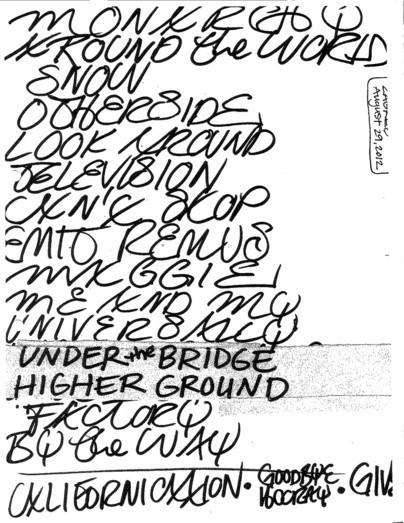 MONARCHY
AROUND the WORLD
SNOW
OTHERSIDE
LOOK AROUND
TELEVISION
CAN'T STOP
EMIT REMUS
MAGGIE
ME AND MY
UNIVERSALLY
UNDER the BRIDGE
HIGHER GROUND
FACTORY
BY the WAY
CALIFORNICATION • GOODBYE HOORAY • GIV
August 29, 2012